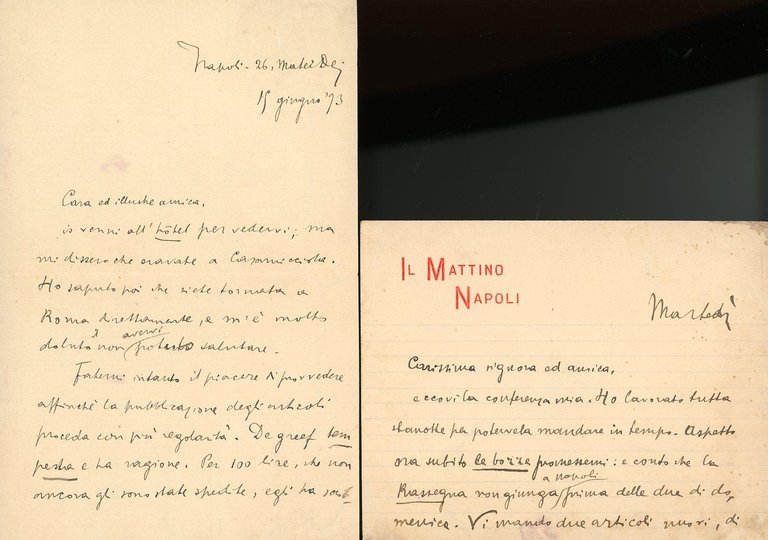 Napoli - 26, Matei Dei
15 giugno '93
Cara ed illustre amica,
io venni all'hôtel per vedervi; ma
mi dissero che eravate a Casamicciola.
Ho saputo poi che siete tornata a
Roma direttamente, e m'è molto
doluto il non avervi potuto salutare.
Fatemi intanto il piacere di provvedere
affinchè la pubblicazione degli articoli
proceda con più regolarità. De greef tem
pesta e ha ragione. Per 100 lire, che non
ancora gli sono state spedite, egli ha
IL MATTINO
NAPOLI
Martedì
Carissima signora ed amica,
eccovi la conferenza mia. Ho lavorato tutta
stanotte per potervela mandare in tempo. Aspetto
ora subito le bozze promessemi: e conto che la
Rassegna non giunga a Napoli prima delle due di do,
menica. Vi mando due articoli nuovi, di